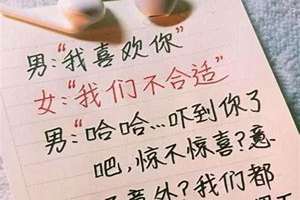 男:“我喜欢你”
女:“我们不合适”
男:“哈哈…吓到你了
吧,惊不惊喜?意
意外?我们都